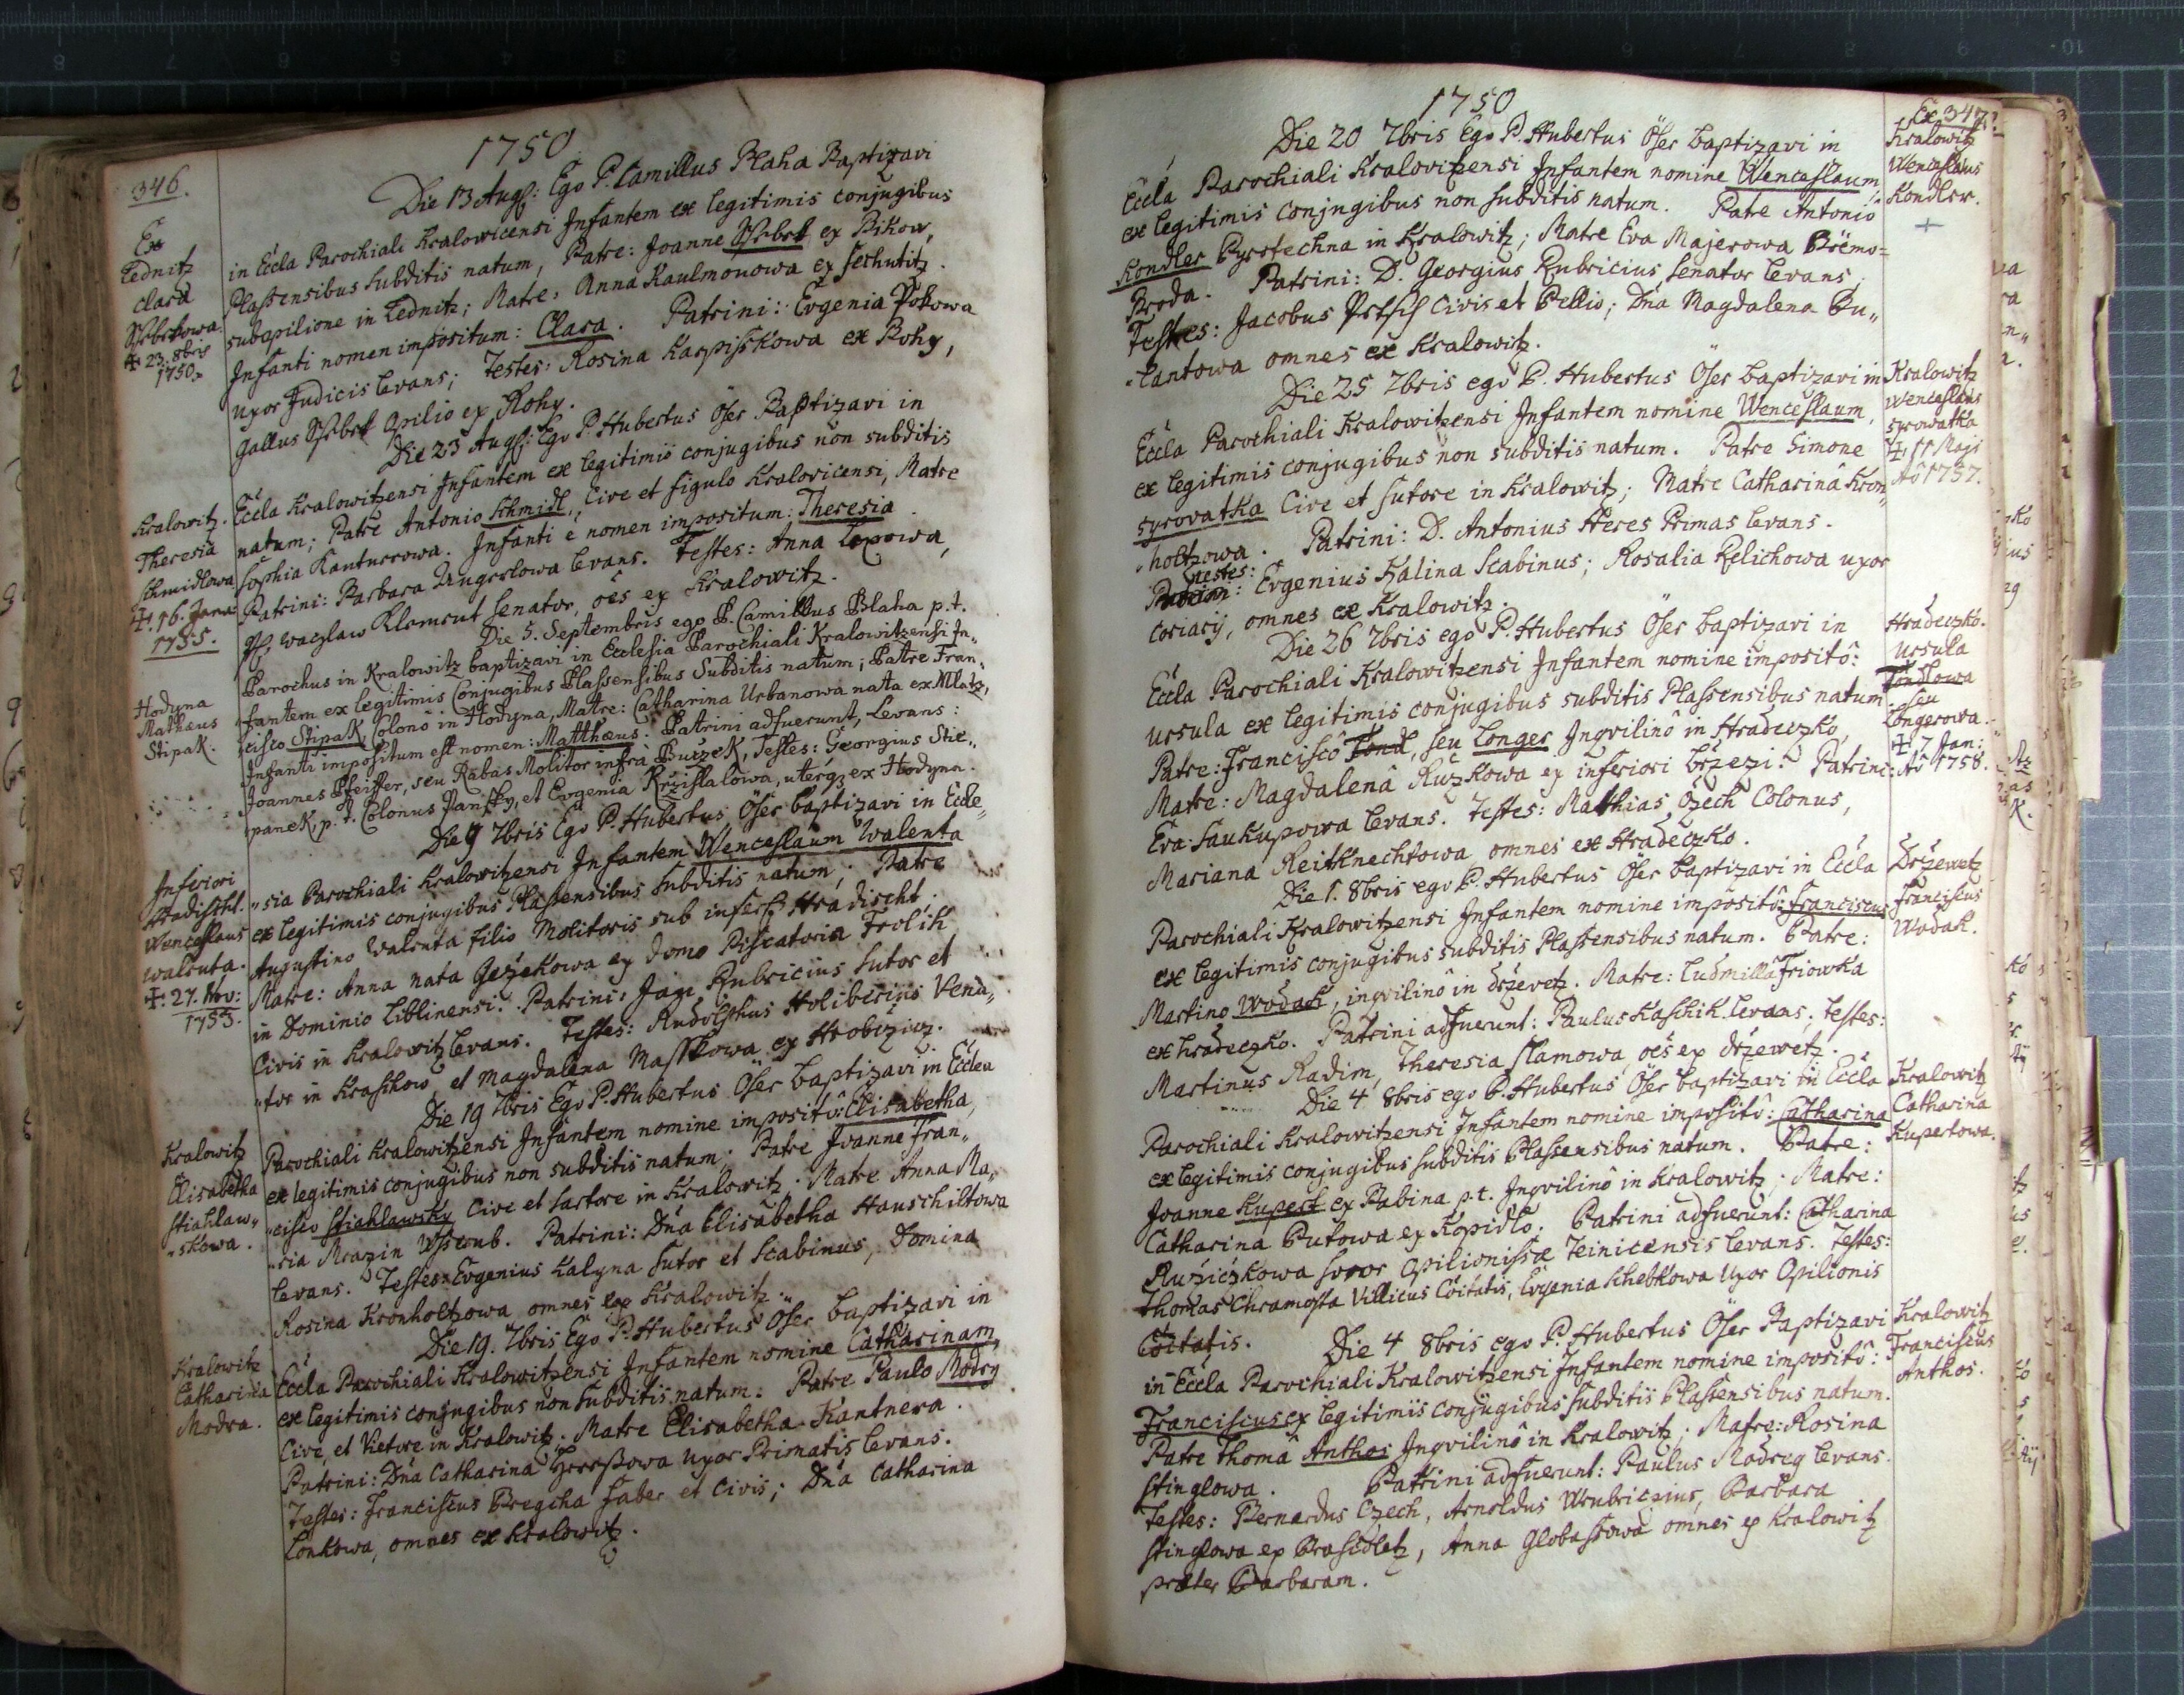 346.
1750
Die 13 Aug: Ego P. Camillus Plaha Baptizavi
in Eccla Parochiali Kralowicensi Infantem ex legitimis conjugibus
Plassensibus subditis natum, Patre: Joanne ex Bikow,
subopilione in Lednitz; Matre: Anna Kaulmonowa ex Sechutitz.
Infanti nomen impositum: Clara. Patrini: Evgenia Pokowa
uxor Judicis levans; Testes: Rosina Karpisskowa ex Rohy,
Gallus opilio ex Rohy.
Ex
Lednitz
Clara
✝ 23. 8bris
1750
Die 23 Aug: Ego P. Hubertus Öser Baptizavi in
Eccla Kralowitzensi Infantem ex legitimis conjugibus non subditis
natum; Patre Antonio Schmidl, Cive et figulo Kralovicensi, Matre
Sophia Kanturrowa. Infanti e nomen impositum: Theresia.
Patrini: Barbara levans. Testes: Anna Lopowa,
Waczlaw Klement Senator, oes ex Kralowitz.
Kralowitz.
Theresia
Schmidlowa
✝. 16. Janu:
1755.
Die 5. Septembris ego P. Camillus Blaha p.t.
Parochus in Kralowitz baptizavi in Ecclesia Parochiali Kralowitzensi In„
fantem ex legitimis Conjugibus Plassensibus Subditis natum; Patre Fran„
cisco Stipak Colono in Hodyna, Matre: Catharina Urbanowa natta ex Mlatz,
Infanti impositum est nomen: Matthæus. Patrini adfuerunt, Levans:
Joannes Pfeiffer, seu Rabas Molitor infra Buczek, Testes: Georgius Stie„
panek, p.t. Colonus Pansky, et Evgenia Krzislalowa, uterq; ex Hodyna.
Hodyna
Mathæus
Stipak.
Die 9 7bris Ego P. Hubertus Öser baptizavi in Eccle„
„sia Parochiali Kralowitzensi Infantem Wenceslaum Walenta
ex legitimis conjugibus Plassensibus subditis natum; Patre
Augustino Walenta filio Molitoris sub infer: Hradischt;
Matre: Anna nata Gezekowa ex domo Piscatoria Frolik
in Dominio Liblinensi. Patrini: Jagi Rubricius Sutor et
Civis in Kralowitz levans. Testes: Rudolphus Holiberius Vena„
„tor in Kraschow, et Magdalena Masskowa ex Hrobczicz.
Inferiori
Hradischt.
Wenceslaus
Walenta.
✝: 27. Nov:
1753.
Die 19 7bris Ego P. Hubertus Öser baptizavi in Eccla
Parochiali Kralowitzensi Infantem nomine imposito: Elisabetha,
ex legitimis conjugibus non subditis natum; Patre Joanne Fran„
„cisco Stiahlawsky Cive et Sartore in Kralowitz. Matre Anna Ma„
„ria Mrazin Patrini: Dña Elisabetha Hauschiltowa
levans. Testes: Evgenius Kalyna Sutor et Scabinus, Domina
Rosina Kronholtzowa omnes ex Kralowitz.
Kralowitz
Elisabetha
Stiahlaw„
„skowa.
Die 19. 7bris Ego P. Hubertus Öser baptizavi in
Eccla Parochiali Kralowitzensi Infantem nomine Catharinam,
ex legitimis conjugibus non subditis natum. Patre Paulo Modry
Cive, et Vietore in Kralowitz. Matre Elisabetha Kantnera.
Patrini: Dña Catharina Uxor Primatis levans.
Testes: Franciscus Pregiha Faber et Civis; Dña Catharina
Lonkowa, omnes ex Kralowitz.
Kralowitz
Catharina
Modra.
1750
347.
Die 20 7bris Ego P. Hubertus Öser baptizavi in
Eccla Parochiali Kralovitzensi Infantem nomine Wenceslaum,
ex legitimis conjugibus non subditis natum. Patre Antonio
Kondler Pyrotechna in Kralowitz; Matre Eva Majerowa Böemo=
Broda. Patrini: D. Georgius Rubricius Senator levans;
Testes: Jacobus Civis et Pellio; Dña Magdalena Du„
„cantowa omnes ex Kralowitz.
Ex
Kralowitz
Wenceslaus
Kondler.
+
Die 25 7bris ego P. Hubertus Öser baptizavi in
Eccla Parochiali Kralowitzensi Infantem nomine Wenceslaum,
ex legitimis conjugibus non subditis natum. Patre Simone
Syrovatka Cive et Sutore in Kralowitz; Matre Catharinâ Kron„
„holtzowa. Patrini: D. Antonius Heres Primas levans.
Testes: Evgenius Kalina Scabinus; Rosalia Relichowa uxor
coriarij, omnes ex Kralowitz.
Kralowitz
Wenceslaus
Syrowatka
✝ 11 Maji
Aô 1757.
Die 26 7bris ego P. Hubertus Öser baptizavi in
Eccla Parochiali Kralowitzensi Infantem nomine impositô:
Ursula ex legitimis conjugibus subditis Plassensibus natum.
Patre: Franciscô Tondl, seu Longer Inqvilinô in Hradeczko,
Matre: Magdalenâ Ruzkowa ex inferiori brzezi. Patrini:
Eva Saukupowa levans. Testes: Mathias Czech Colonus,
Mariana Reitknechtowa omnes ex Hradeczko.
Hradeczko.
Ursula
Tondlowa
seu
Longerowa.
✝ 7 Jan:
Aô 1758.
Die 1. 8bris ego P. Hubertus Öser baptizavi in Eccla
Parochiali Kralowitzensi Infantem nomine impositô: Franciscus
ex legitimis conjugibus subditis Plassensibus natum. Patre:
Martino Wodak, inqvilinô in drzevetz. Matre: Ludmillâ Friowka
ex hradeczko. Patrini adfuerunt: Paulus Kaschik levans; testes:
Martinus Radim, Theresia Slamowa oes ex drzewetz.
Drzewetz
Franciscus
Wodak.
Die 4 8bris ego P. Hubertus Öser baptizavi in Eccla
Parochiali Kralowitzensi Infantem nomine impositô: Catharina
ex legitimis conjugibus subditis Plassensibus natum. Patre:
Joanne Kupert ex Babina p.t. Inqvilinô in Kralowitz; Matre:
Catharina Putowa ex Kopidlo. Patrini adfuerunt: Catharina
Ruziczkowa soror opilionissæ Teinicensis levans. Testes:
Thomas Chramosta Villicus Coitatis, Evgenia Schebkowa Uxor Opilionis
Coitatis.
Kralowitz
Catharina
Kupertowa.
Die 4 8bris ego P. Hubertus Öser Baptizavi
in Eccla Parochiali Kralowitzensi Infantem nomine impositô:
Franciscus ex legitimis conjugibus subditis Plassensibus natum.
Patre Thomâ Anthos Inqvilinô in Kralowitz; Matre: Rosina
Stinglowa. Patrini adfuerunt: Paulus Modrey levans.
Testes: Bernardus Czech, Arnoldus Wrubriczius, Barbara
Stinglowa ex Brasidletz, Anna Globassowa omnes ex Kralowitz
præter Barbaram.
Kralowitz
Franciscus
Anthos.